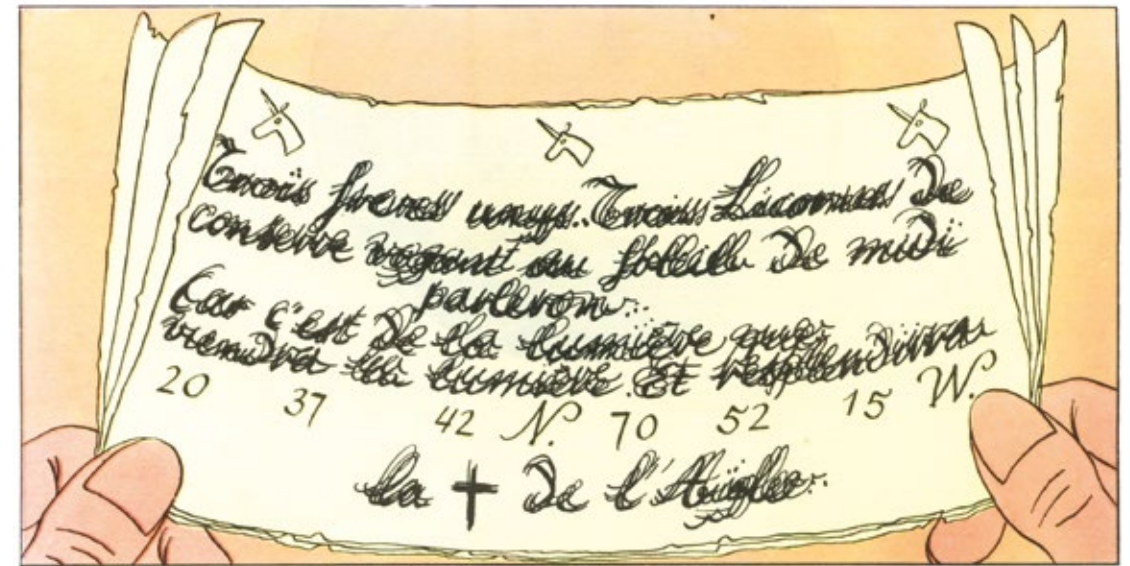 Trois freres unys. Trois Licornes de
conserve vogant au Soleil de midi
parleron.
Car c'est de la lumière que
viendra la lumière. Et resplendira
20 37 42 N. 70 52 15 W.
la † de l'Aigle.